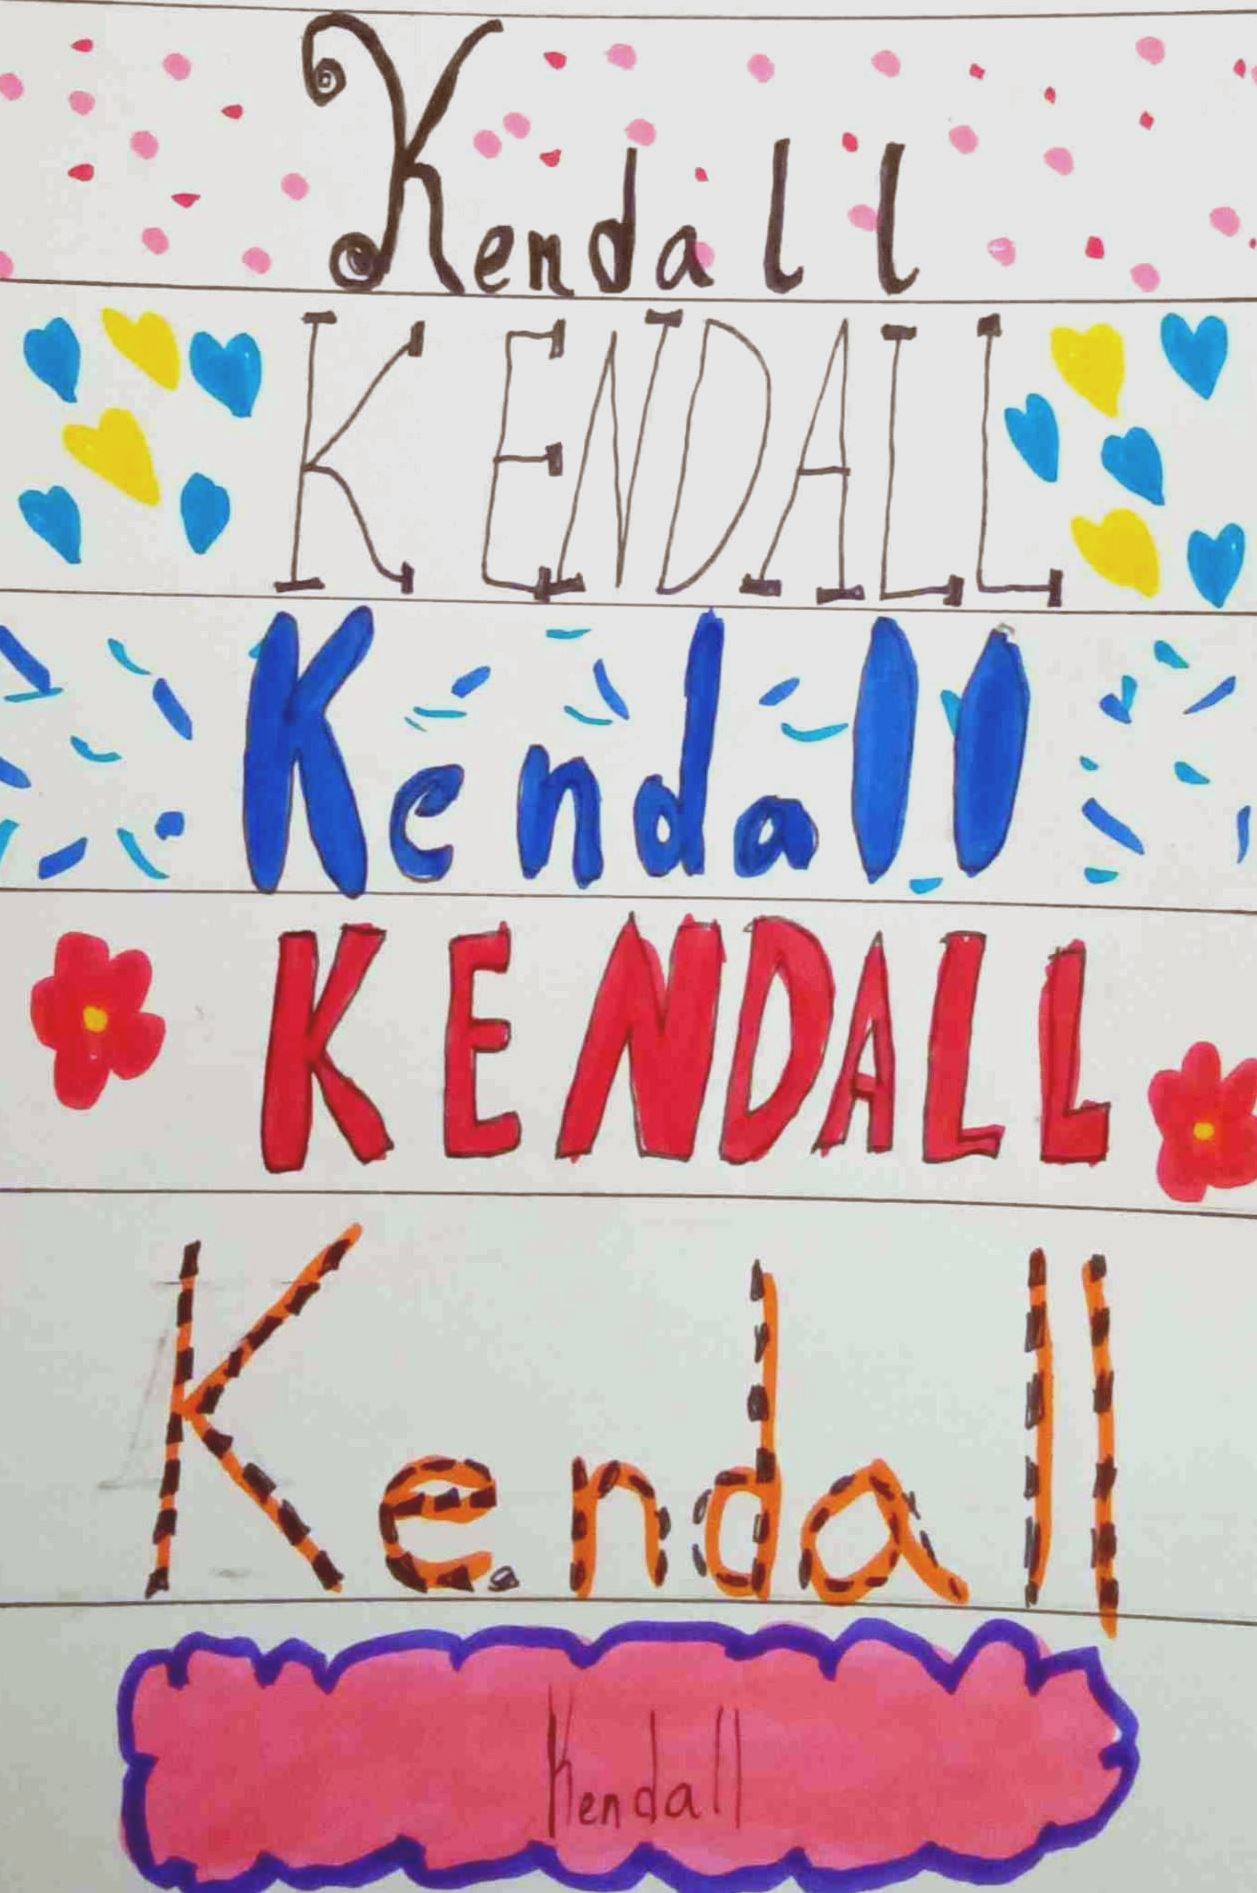 Kendall
KENDALL
Kendall
KENDALL
Kendall
Kendall